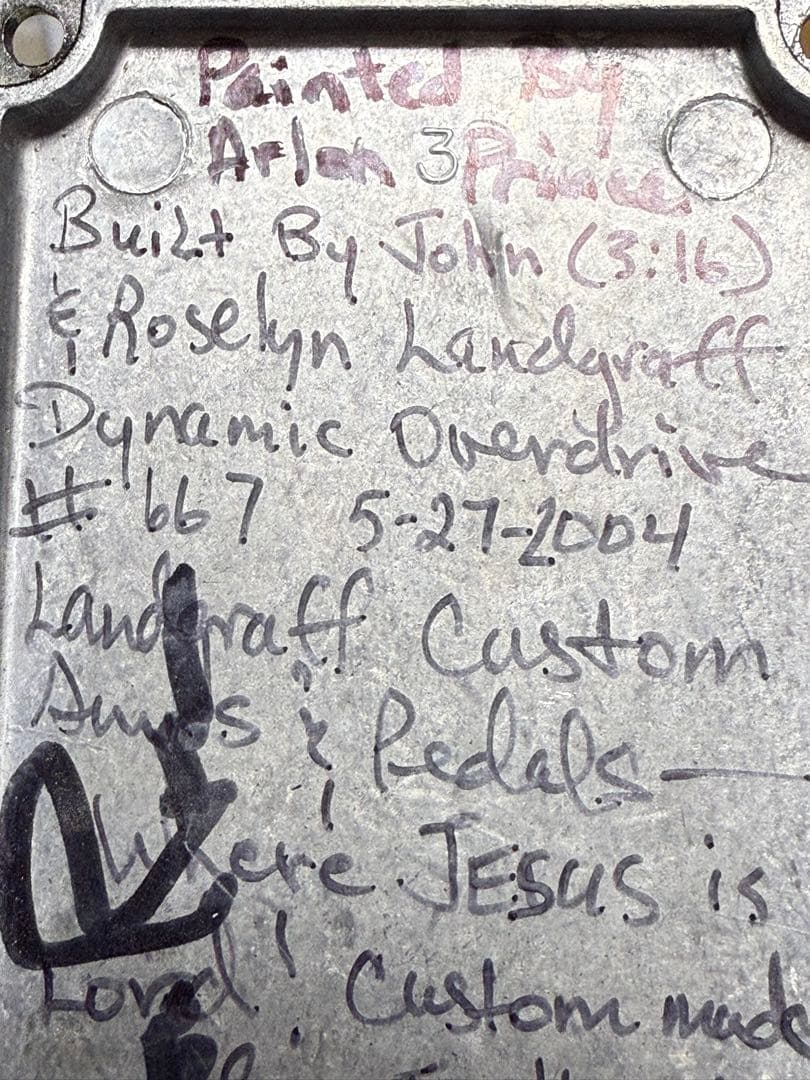 Painted By
Arlen 3 Prince
Built By John (3:16)
& Roselyn Landgraff
Dynamic Overdrive
# 667 5-27-2004
Landgraff Custom
Amps & Pedals—
Where JESUS is
Lord! Custom made